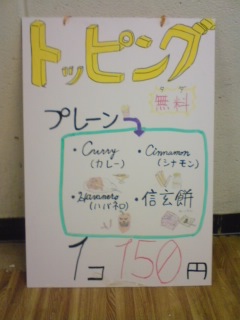 トッピング
タダ
無料
プレーン
・Curry ・Cinnamon
(カレー) (シナモン)
・Havanero ・信玄餅
(ハバネロ)
1コ 150円